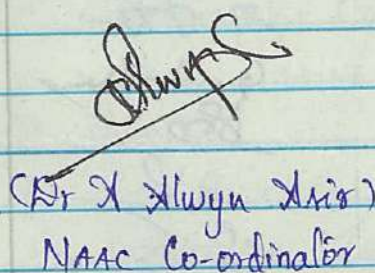 (Dr A Alwyn Asir)
NAAC Co-ordinator